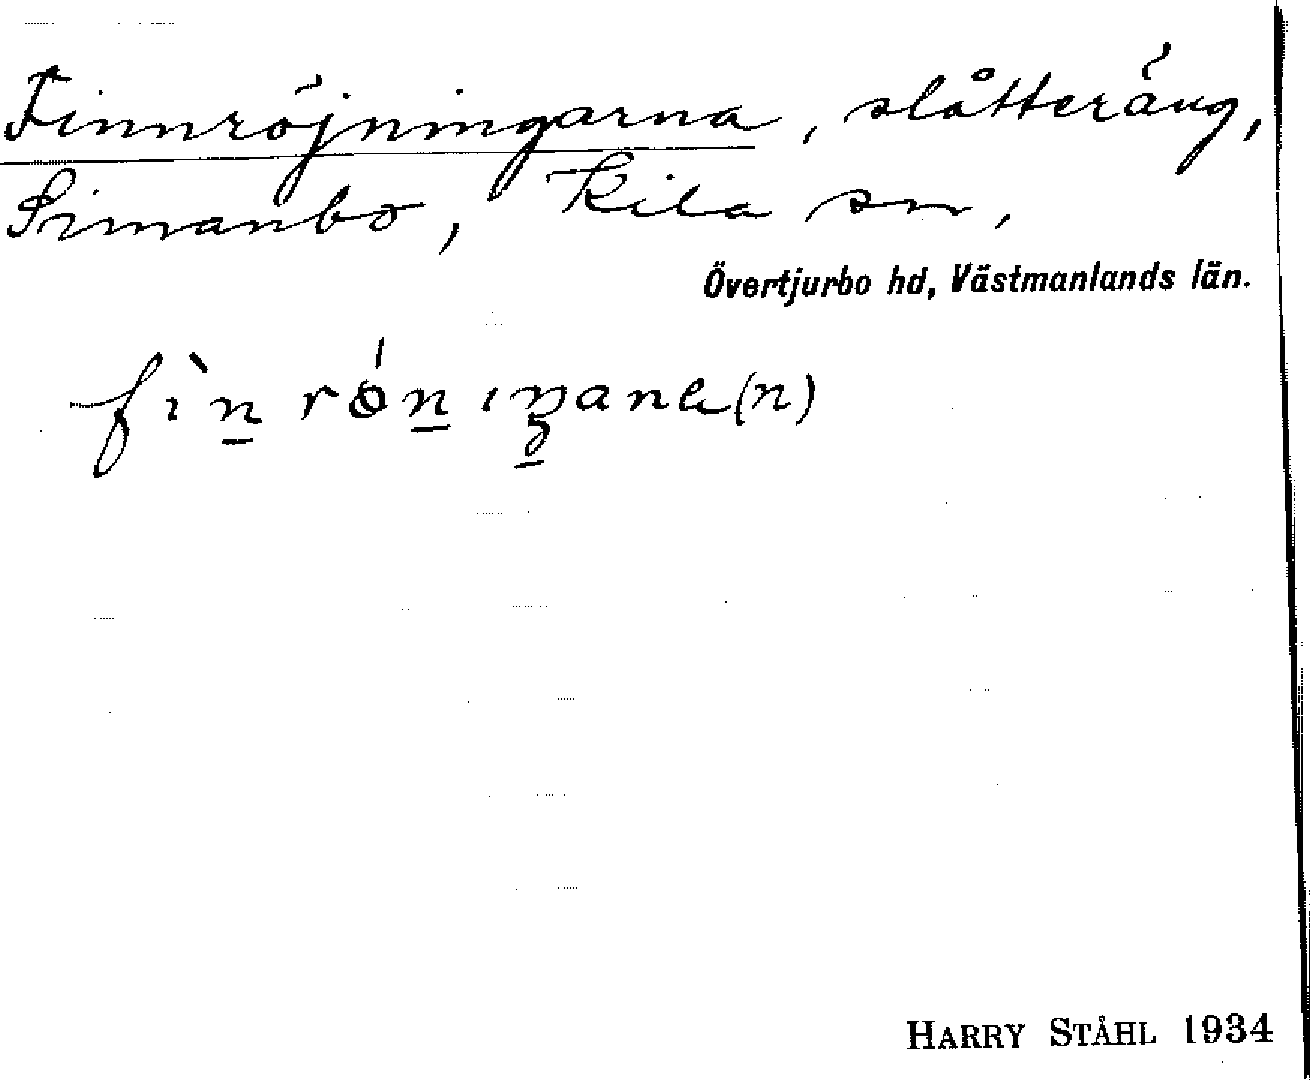 Finnröjningarna, slåtteräng,
Simanbo, Kila sn,
Övertjurbo hd, Västmanlands län.
HARRY STÅHL 1934